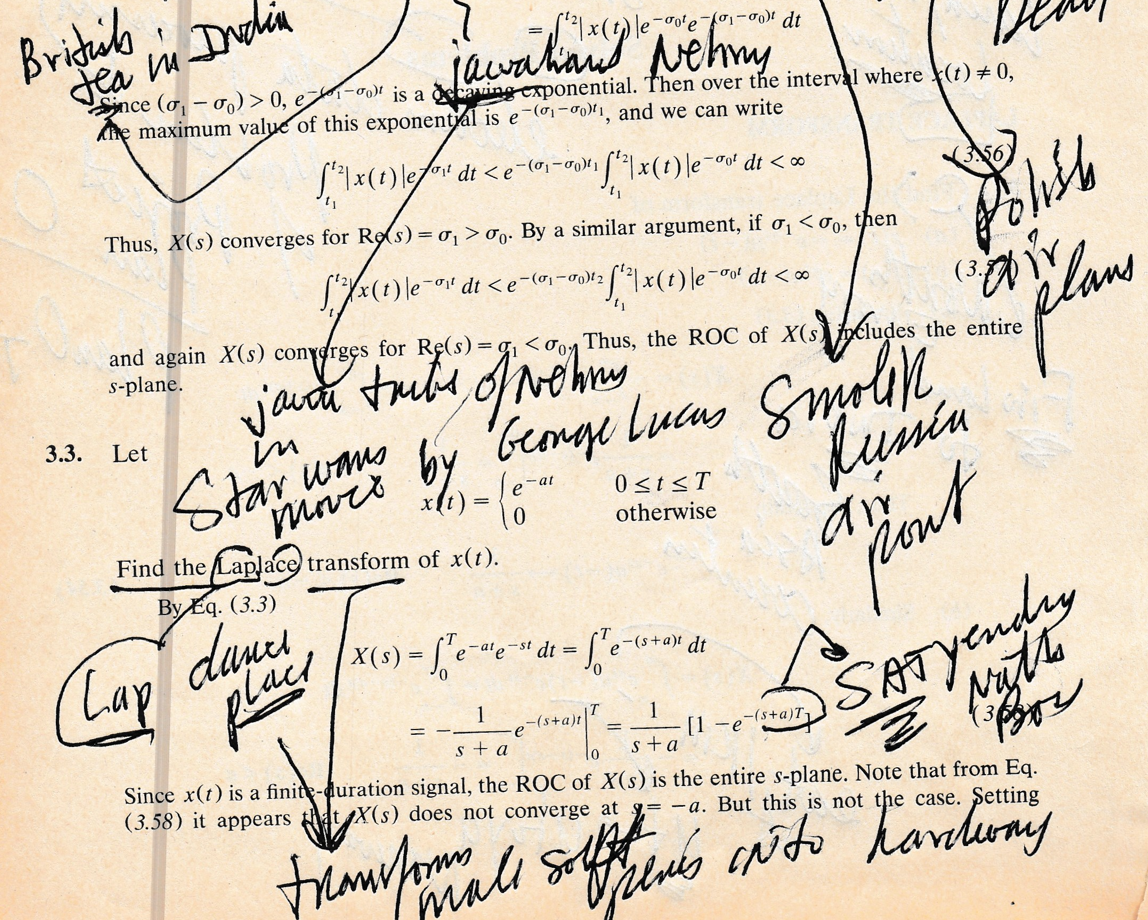 = ∫_{t₁}^{t₂} |x(t)|e^{-σ₀t}e^{-(σ₁-σ₀)t} dt
British
tea in India
jawaharl Nehru
Since (σ₁ − σ₀) > 0, e^{-(σ₁-σ₀)t} is a decaying exponential. Then over the interval where x(t) ≠ 0,
the maximum value of this exponential is e^{-(σ₁-σ₀)t₁}, and we can write
∫_{t₁}^{t₂} |x(t)|e^{-σ₁t} dt < e^{-(σ₁-σ₀)t₁} ∫_{t₁}^{t₂} |x(t)|e^{-σ₀t} dt < ∞ (3.56)
Polish
air
plans
Thus, X(s) converges for Re(s) = σ₁ > σ₀. By a similar argument, if σ₁ < σ₀, then
∫_{t₁}^{t₂} |x(t)|e^{-σ₁t} dt < e^{-(σ₁-σ₀)t₂} ∫_{t₁}^{t₂} |x(t)|e^{-σ₀t} dt < ∞ (3.57)
and again X(s) converges for Re(s) = σ₁ < σ₀. Thus, the ROC of X(s) includes the entire
s-plane.
java of Nehru
in
Star wars by George Lucas
movie
Smolsk
Russia
air
port
3.3. Let
x(t) = { e^{-at} 0 ≤ t ≤ T
0 otherwise
Find the Laplace transform of x(t).
By Eq. (3.3)
Lap dance
place
X(s) = ∫_0^T e^{-at}e^{-st} dt = ∫_0^T e^{-(s+a)t} dt
SATyendra
Nath
Bos
= −1/(s + a) e^{-(s+a)t} |_0^T = 1/(s + a) [1 − e^{-(s+a)T}] (3.58)
Since x(t) is a finite-duration signal, the ROC of X(s) is the entire s-plane. Note that from Eq.
(3.58) it appears that X(s) does not converge at s = −a. But this is not the case. Setting
transforms
male soft penis into hardway